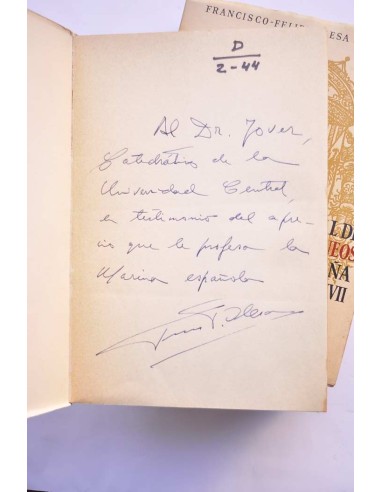 D
2-44
Al Dr. Jover,
Catedrático de la
Universidad Central,
en testimonio del apre-
cio que le profesa la
Marina española
FRANCISCO-FELI
ESA
L D
EOS
ÑA
VII